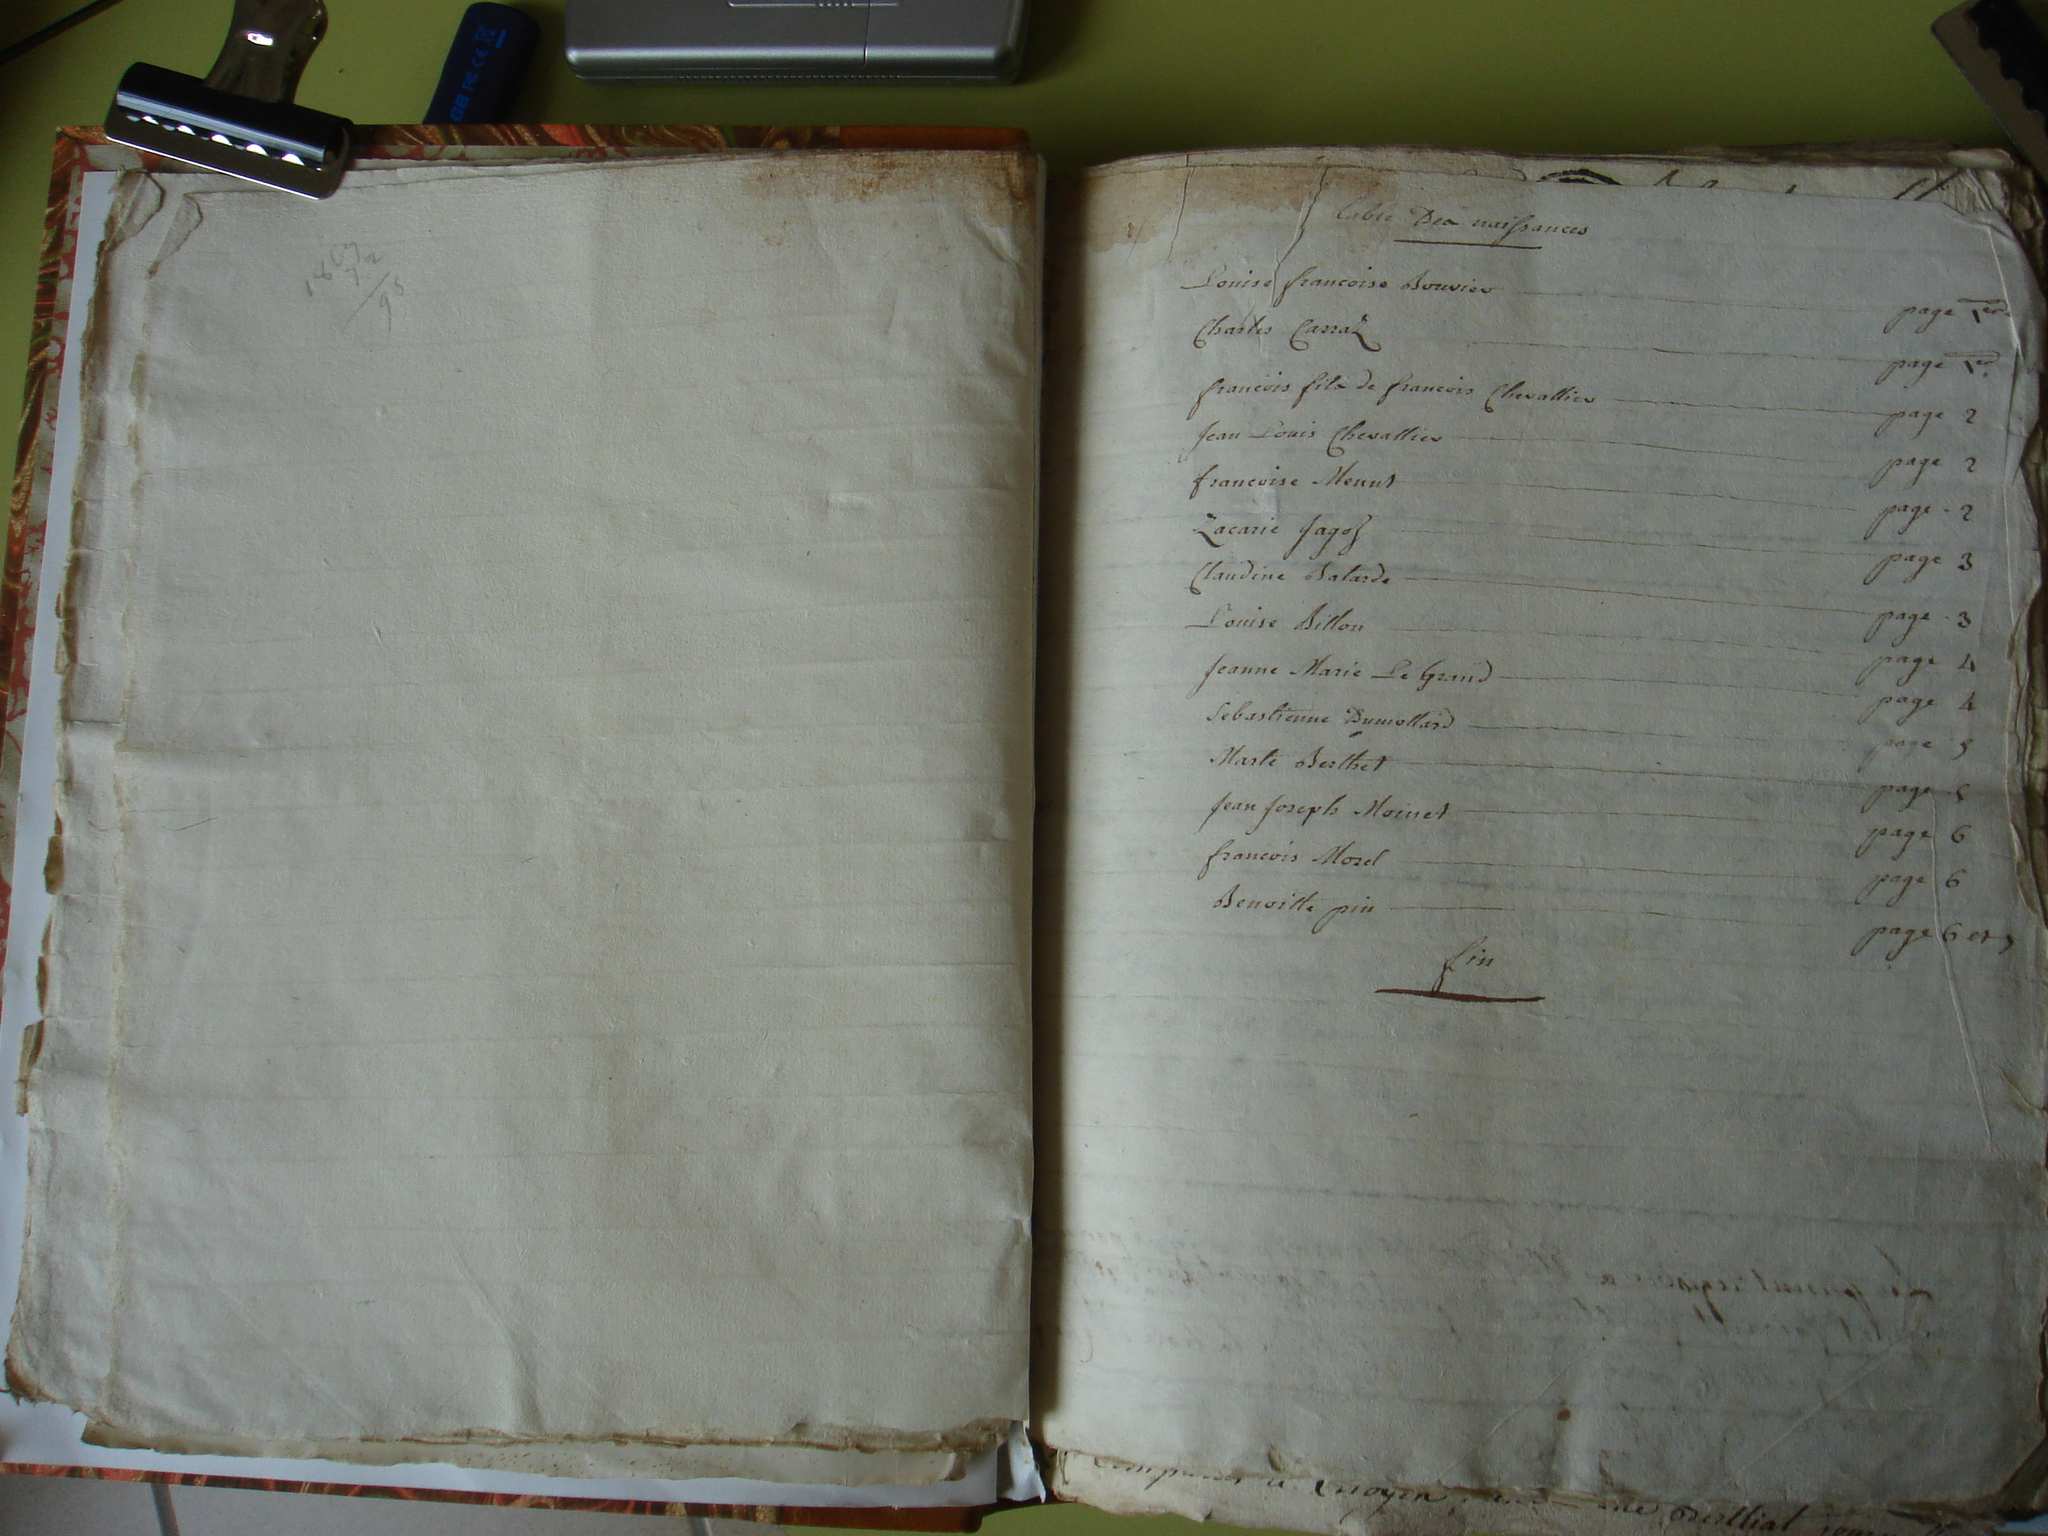 GB FC CE
1807
72
/95
table Des naissances
Louise francoise Bouvier page 1er
Charles Carraz page 1er
francois fils de francois Chevallier page 2
Jean Louis Chevallier page 2
francoise Menut page 2
Zacarie Jagoz page 3
Claudine Batarde page 3
Louise Billon page 4
Jeanne Marie Le Grand page 4
Sebastienne Dumollard page 5
Marte Berthet page 5
Jean Joseph Moinet page 6
francois Morel page 6
Benoitte pin page 6 et 7
fin